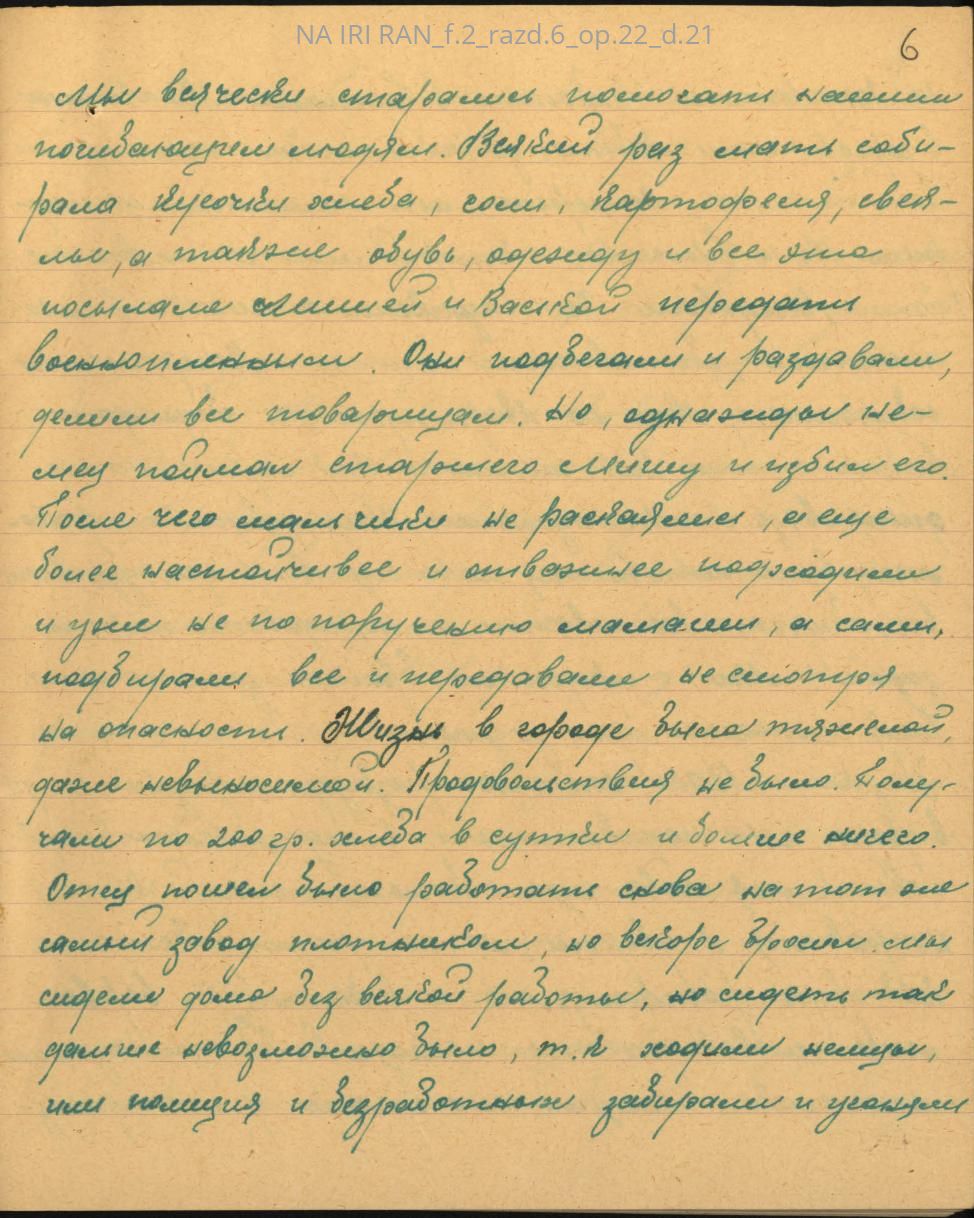 NA IRI RAN_f.2_razd.6_op.22_d.21
6
Мы всячески старались помогать нашим
погибающим людям. Всякий раз мать соби-
рала кусочки хлеба, соли, картофеля, свек-
лы, а также обувь, одежду и все это
посылала с Мишей и Васькой передать
военнопленным. Они подбегали и раздавали,
делили все товарищам. Но, однажды не-
мец поймал старшего Мишу и избил его.
После чего мальчики не раскаялись, а еще
более настойчивее и отважнее подходили
и уже не по поручению мамаши, а сами,
подбирали все и передавали не смотря
на опасность. Жизнь в городе была тяжелой,
даже невыносимой. Продовольствия не было. Полу-
чали по 200 гр. хлеба в сутки и больше ничего.
Отец пошел было работать снова на тот же
самый завод плотником, но вскоре бросил. Мы
сидели дома без всякой работы, но сидеть так
дальше невозможно было, т.к ходили немцы,
или полиция и безработных забирали и угоняли